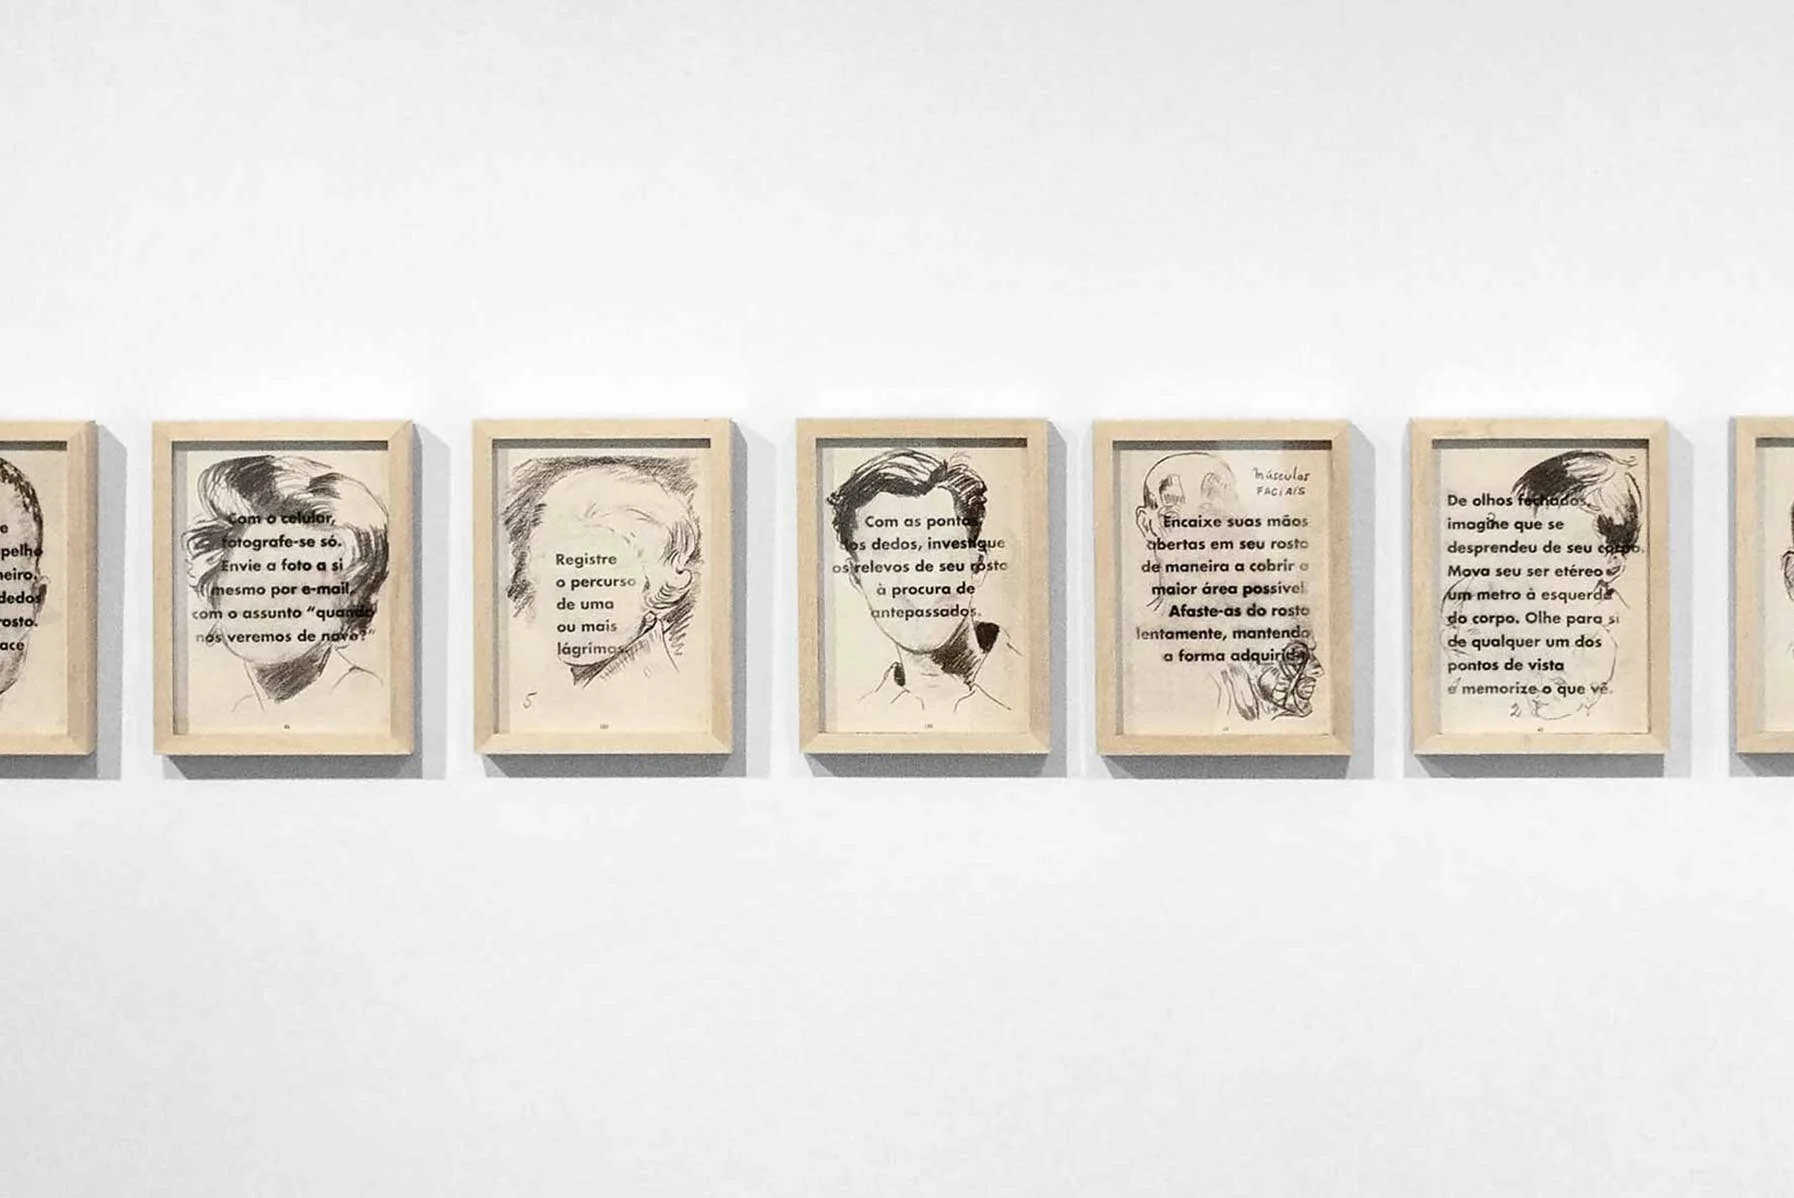 e
pelho
neiro.
dedos
rosto.
ace
Com o celular,
fotografe-se só.
Envie a foto a si
mesmo por e-mail,
com o assunto “quando
nos veremos de novo?”
Registre
o percurso
de uma
ou mais
lágrimas.
5
Com as pontas
dos dedos, investigue
os relevos de seu rosto
à procura de
antepassados.
músculos
FACIAIS
Encaixe suas mãos
abertas em seu rosto
de maneira a cobrir a
maior área possível.
Afaste-as do rosto
lentamente, mantendo
a forma adquirida.
De olhos fechados,
imagine que se
desprendeu de seu corpo.
Mova seu ser etéreo
um metro à esquerda
do corpo. Olhe para si
de qualquer um dos
pontos de vista
e memorize o que vê.
2